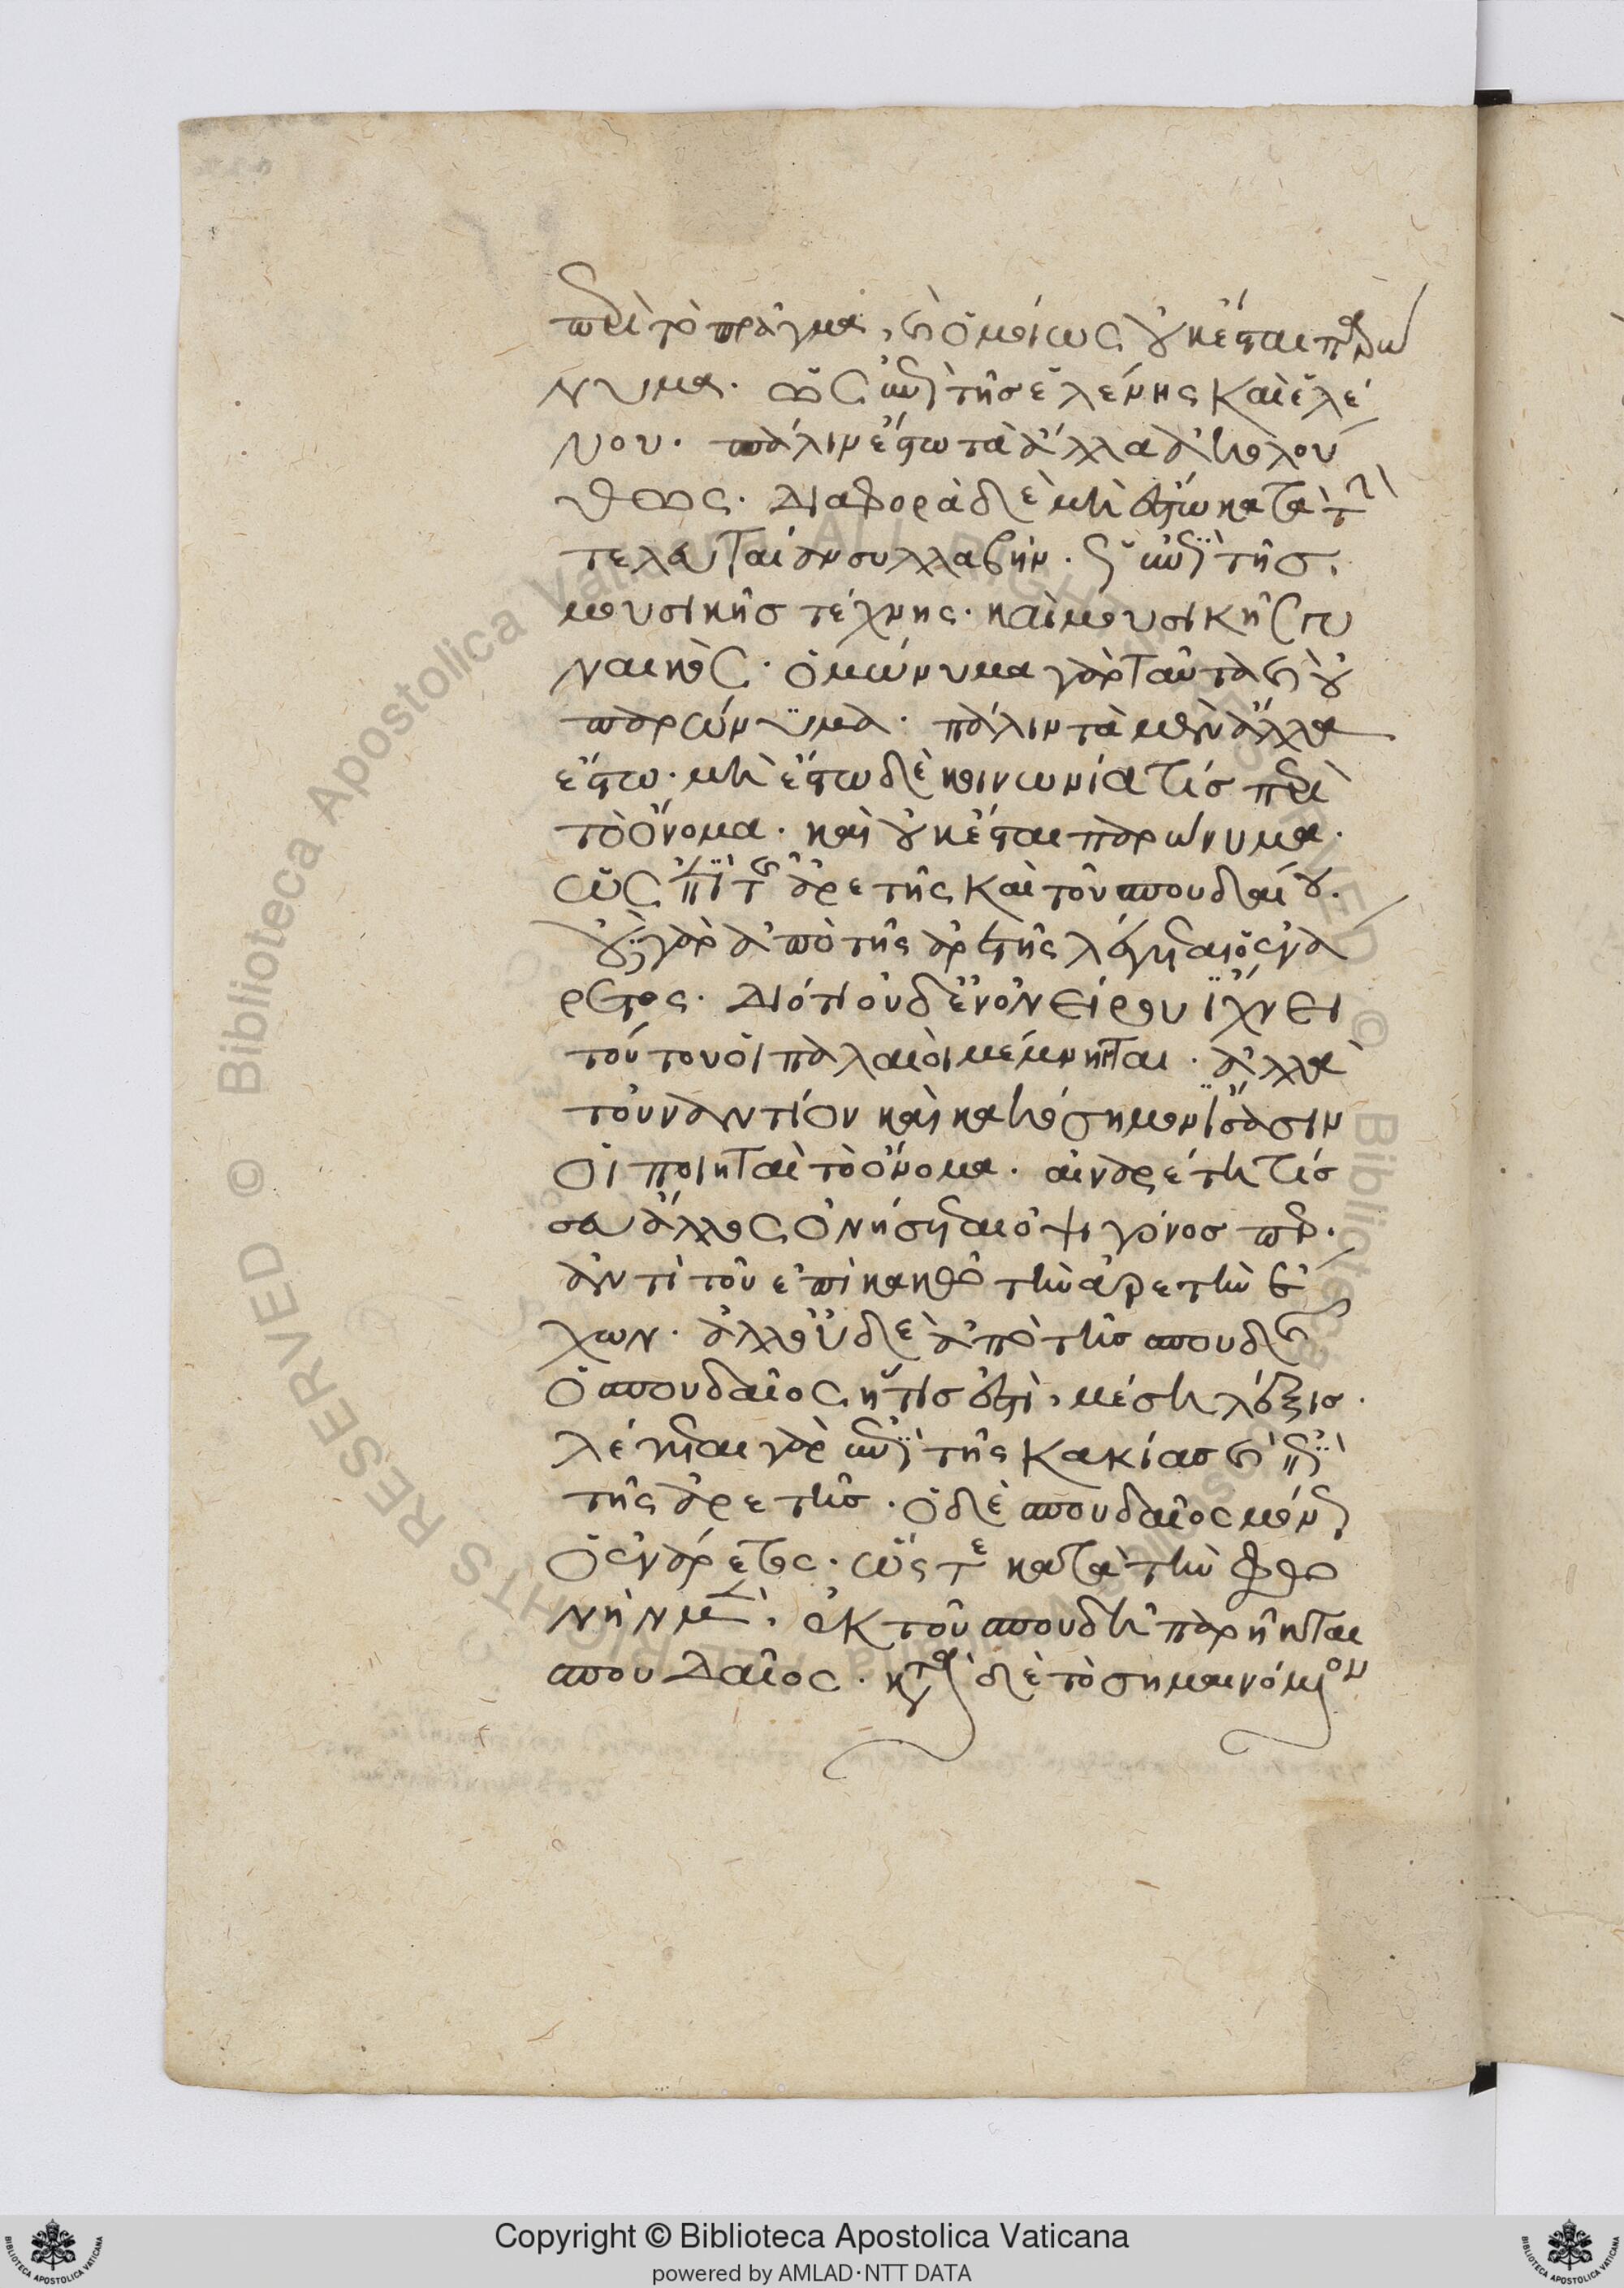 περὶ τὸ πρᾶγμα, καὶ ὁμοίως οὐκ ἔσται παρώ
νυμα. ὡς ἐπὶ τῆς ἑλένης καὶ ἑλέ
νου. πάλιν ἔστω τὰ ἄλλα ἀκολού
θως. διαφορὰ δὲ μὴ ἔστω κατὰ τὴν
τελευταίαν συλλαβήν. ὡς ἐπὶ τῆς
μουσικῆς τέχνης. καὶ μουσικῆς γυ
ναικὸς. ὁμώνυμα γὰρ ταῦτα καὶ οὐ
παρώνυμα. πάλιν τὰ μὲν ἄλλα
ἔστω. μὴ ἔστω δὲ κοινωνία τίς περὶ
τὸ ὄνομα. καὶ οὐκ ἔσται παρώνυμα.
ὡς ἐπὶ τῆς ἀρετῆς καὶ τοῦ σπουδαίου.
οὐ γὰρ ἀπὸ τῆς ἀρετῆς λέγεται ὁ ἐνά
ρετος. διότι οὐδ' ἐν ὀνείρου ἴχνει
τούτου οἱ παλαιοὶ μέμνηνται. ἀλλὰ
τοὐναντίον καὶ κακόσημον ἴσασιν
οἱ ποιηταὶ τὸ ὄνομα. αἰναρέτη τίς
σευ ἄλλος ὀνήσεται ὀψίγονός περ.
ἀντὶ τοῦ ἐπὶ κακῶ τὴν ἀρετὴν ἔ
χων. ἀλλ' οὐδὲ ἀπὸ τῆς σπουδῆς
ὁ σπουδαῖος, ἥτις ἐστὶ, μέση λέξις.
λέγεται γὰρ ἐπὶ τῆς κακίας καὶ ἐπὶ
τῆς ἀρετῆς. ὁ δὲ σπουδαῖος μόνως
ὁ ἐνάρετος. ὥστε κατὰ τὴν φω
νὴν μὲν, ἐκ τοῦ σπουδὴ παρῆκται
σπουδαῖος. κατὰ δὲ τὸ σημαινόμενον
Copyright © Biblioteca Apostolica Vaticana
powered by AMLAD·NTT DATA